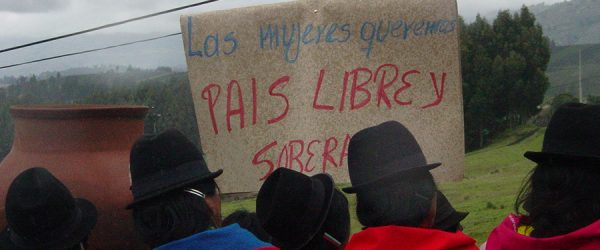 Las mujeres queremos
PAIS LIBRE Y
SOBERA